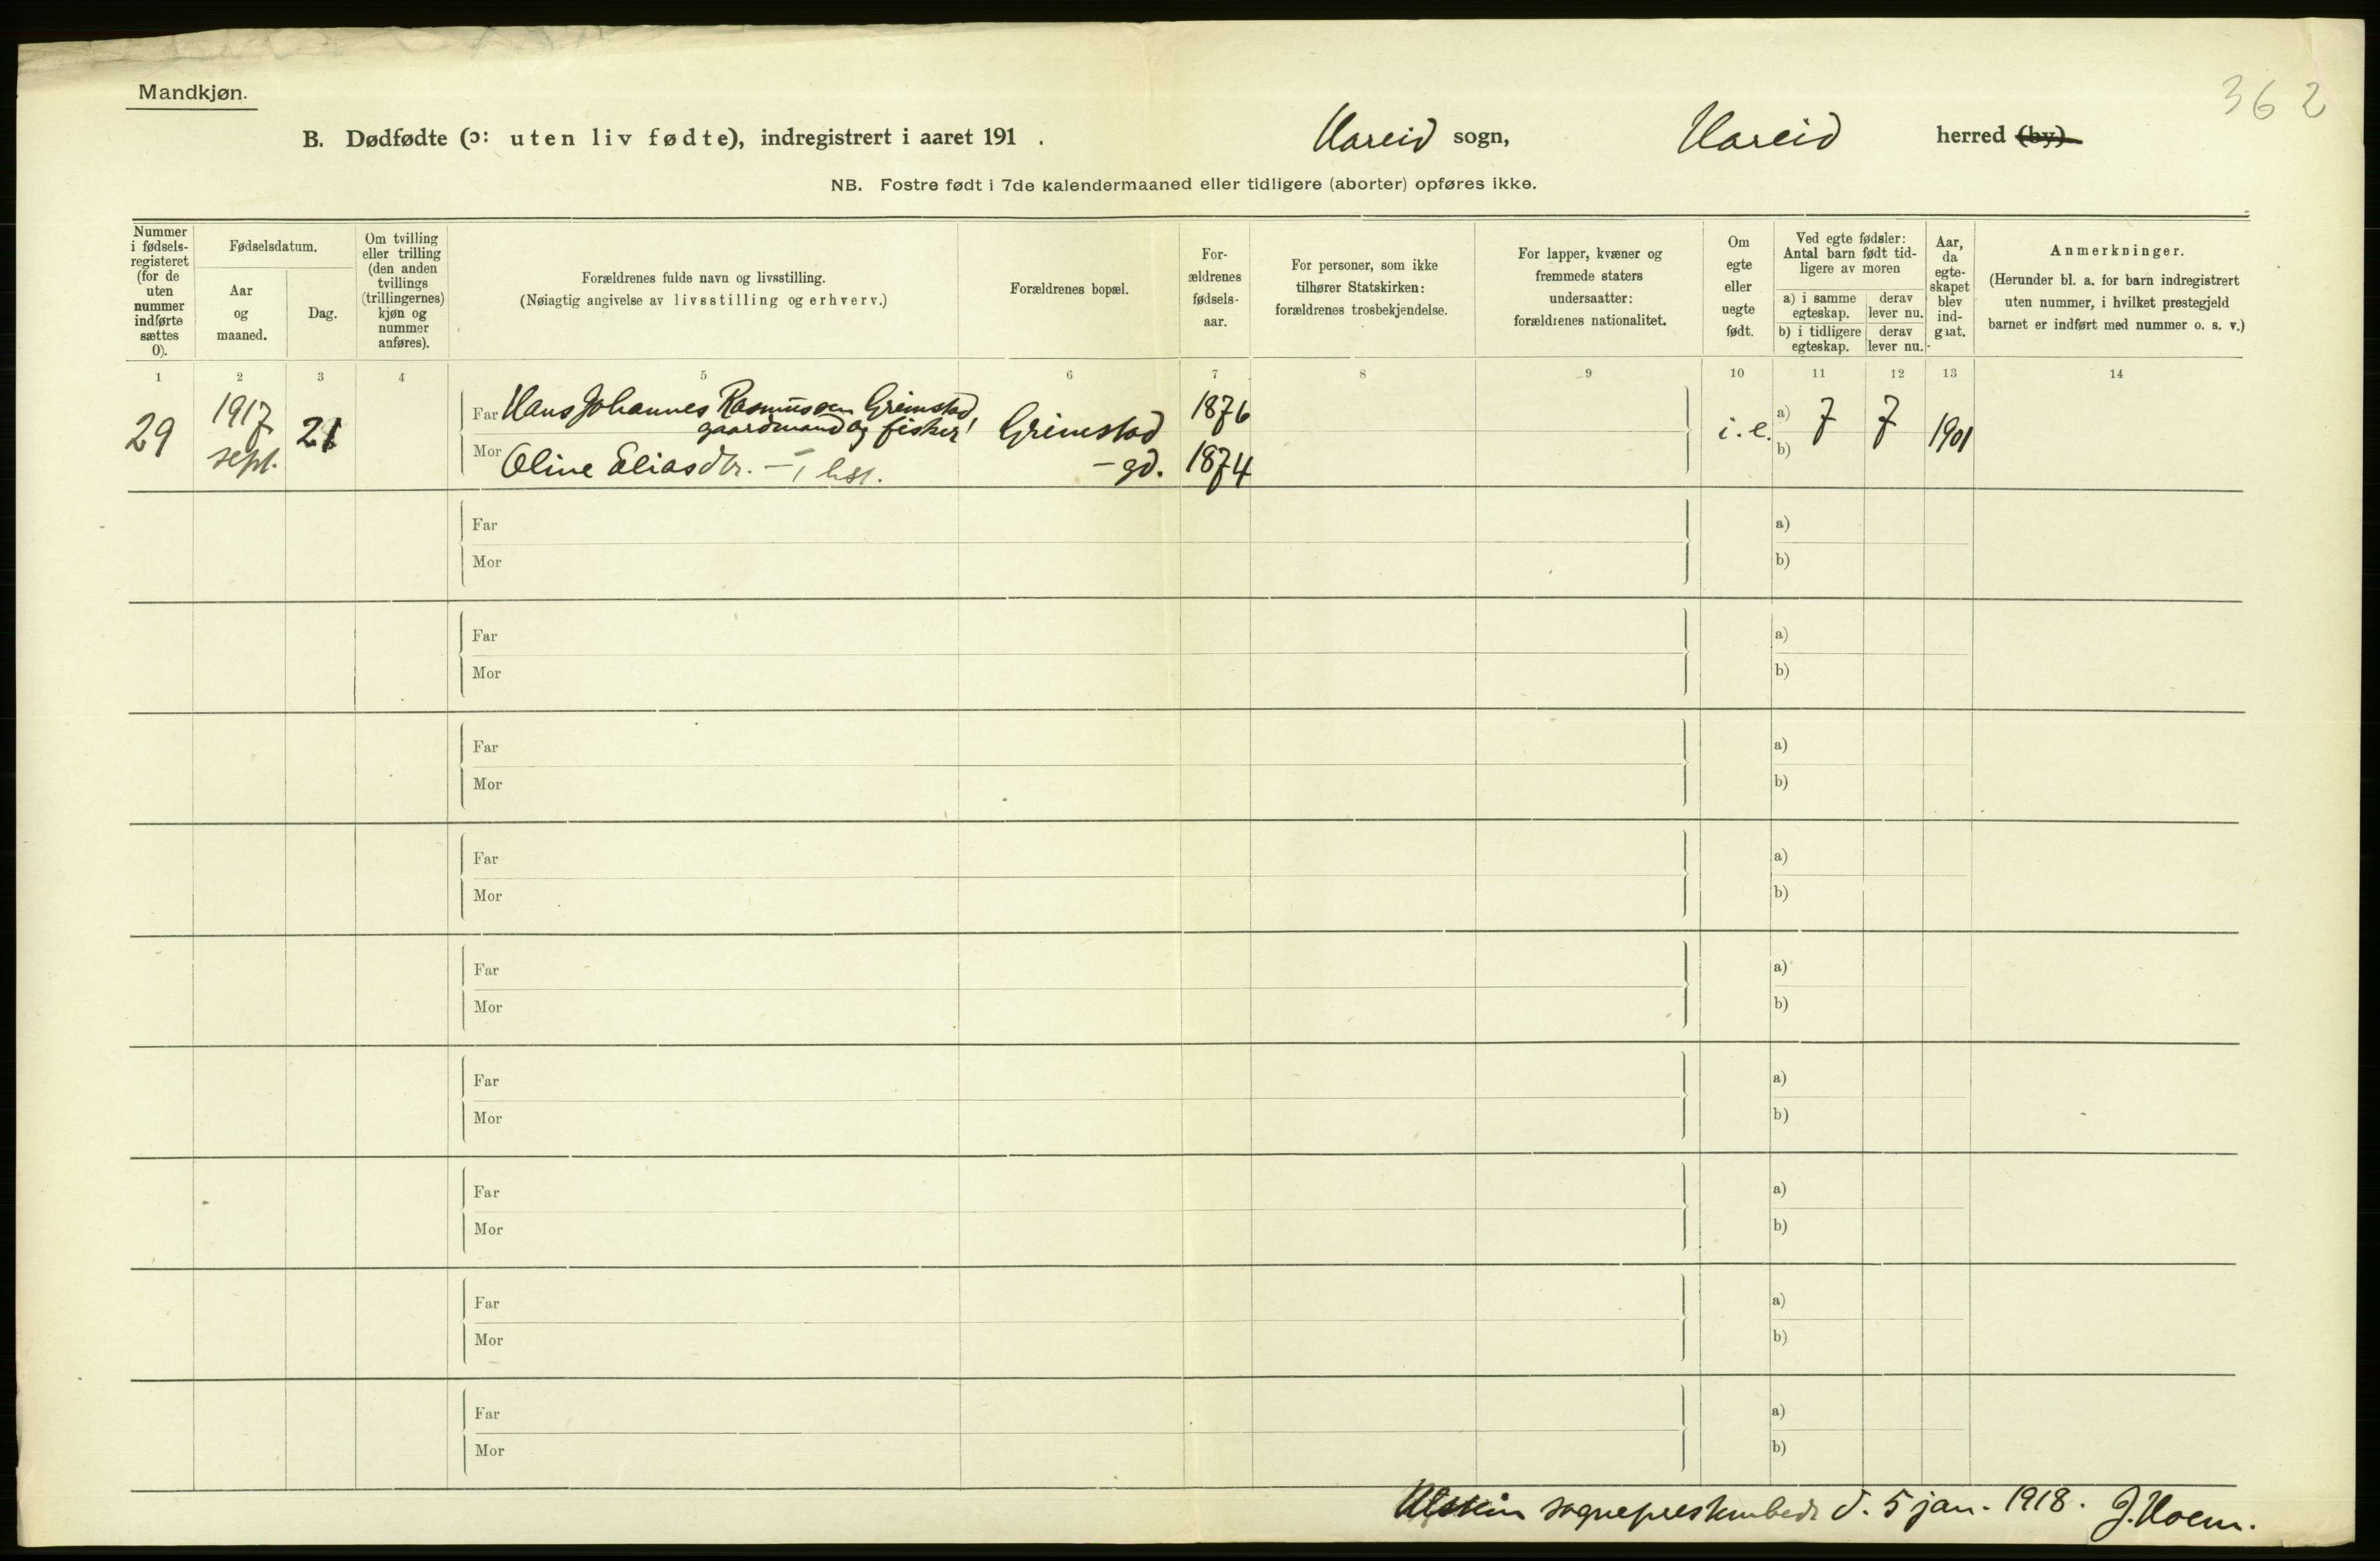 362
Mandkjøn.
B. Dødfødte (ɔ: uten liv fødte), indregistrert i aaret 191 . Hareid sogn, Hareid herred (by)
NB. Fostre født i 7de kalendermaaned eller tidligere (aborter) opføres ikke.
Nummer
i fødsels-
registeret
(for de
uten
nummer
indførte
sættes
0).
Fødselsdatum.
Aar
og
maaned.
Dag.
Om tvilling
eller trilling
(den anden
tvillings
(trillingernes)
kjøn og
nummer
anføres).
Forældrenes fulde navn og livsstilling.
(Nøiagtig angivelse av livsstilling og erhverv.)
Forældrenes bopæl.
For-
ældrenes
fødsels-
aar.
For personer, som ikke
tilhører Statskirken:
forældrenes trosbekjendelse.
For lapper, kvæner og
fremmede staters
undersaatter:
forældrenes nationalitet.
Om
egte
eller
uegte
født.
Ved egte fødsler:
Antal barn født tid-
ligere av moren
a) i samme
egteskap.
derav
lever nu.
b) i tidligere
egteskap.
derav
lever nu.
Aar,
da
egte-
skapet
blev
ind-
gaat.
Anmerkninger.
(Herunder bl. a. for barn indregistrert
uten nummer, i hvilket prestegjeld
barnet er indført med nummer o. s. v.)
1 2 3 4 5 6 7 8 9 10 11 12 13 14
29 1917 sept. 21
Far Hans Johannes Rasmussen Grimstad,
gaardmand og fisker Grimstad 1876
i. e. a) 7 7 1901
b)
Mor Oline Eliasdtr. — , hst. — gd. 1874
Far a)
Mor b)
Far a)
Mor b)
Far a)
Mor b)
Far a)
Mor b)
Far a)
Mor b)
Far a)
Mor b)
Far a)
Mor b)
Far a)
Mor b)
Far a)
Mor b)
Ulstein sogneprestembede d. 5 jan. 1918. J. Hoem.